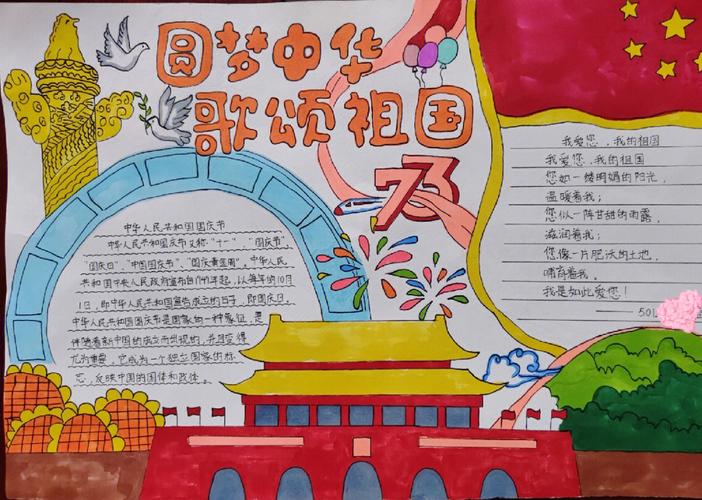 圆梦中华
歌颂祖国
73
中华人民共和国国庆节
中华人民共和国国庆节又称"十一"、"国庆节"、
国庆日"、"中国国庆节"、"国庆黄金周"。中华人民
共和国中央人民政府宣布自1949年起，以每年的10月
1日，即中华人民共和国宣告成立的日子，即国庆日。
中华人民共和国国庆节是国家的一种象征，是
伴随着新中国的成立而出现的，并且变得
尤为重要，它成为一个独立国家的标
志，反映中国的国体和政体。
我爱您，我的祖国
我爱您，我的祖国
您如一缕明媚的阳光，
温暖着我；
您似一阵甘甜的雨露，
滋润着我；
您像一片肥沃的土地，
哺育着我。
我是如此爱您！
——501